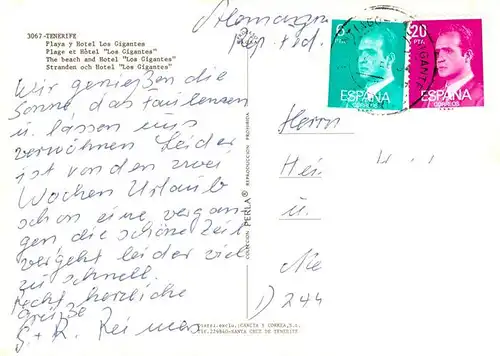 3067-TENERIFE
Playa y Hotel Los Gigantes
Plage et Hôtel "Los Gigantes"
The beach and Hotel "Los Gigantes"
Stranden och Hotel "Los Gigantes"
Wir genießen die
Sonne das Faulenzen
u. lassen uns
verwöhnen. Leider
ist von den zwei
Wochen Urlaub
schon eine vergan-
gen die schöne Zeit
vergeht leider viel
zu schnell.
Recht herzliche
Grüße
S + R.
COLECCION PERLA® REPRODUCCION PROHIBIDA
ESPAÑA
CORREOS
20
PTA
ESPAÑA
CORREOS
Herrn
u.
D 244
SANTA CRUZ DE TENERIFE